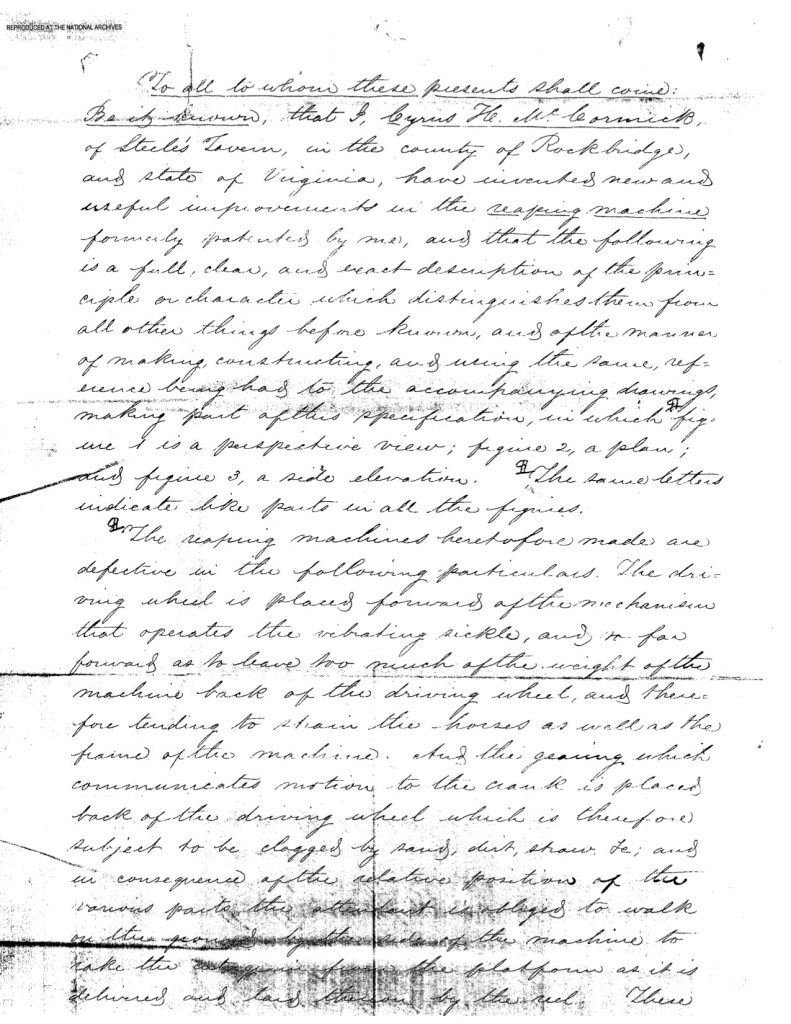 REPRODUCED AT THE NATIONAL ARCHIVES
To all to whom these presents shall come:
Be it known, that I, Cyrus H. McCormick,
of Steele's Tavern, in the county of Rockbridge,
and state of Virginia, have invented new and
useful improvements in the reaping machine
formerly patented by me, and that the following
is a full, clear, and exact description of the prin=
ciple or character which distinguishes them from
all other things before known, and of the manner
of making, constructing, and using the same, ref=
erence being had to the accompanying drawings,
making part of this specification, in which fig-
ure 1 is a perspective view; figure 2, a plan;
and figure 3, a side elevation. The same letters
indicate like parts in all the figures.
The reaping machines heretofore made are
defective in the following particulars. The dri=
ving wheel is placed forward of the mechanism
that operates the vibrating sickle, and so far
forward as to leave too much of the weight of the
machine back of the driving wheel, and there=
fore tending to strain the horses as well as the
frame of the machine. And the gearing which
communicates motion to the crank is placed
back of the driving wheel which is therefore
subject to be clogged by sand, dirt, straw, &c; and
in consequence of the relative position of the
various parts, the attendant is obliged to walk
on the ground by the side of the machine to
rake the cut grain from the platform as it is
delivered and laid thereon by the reel. These